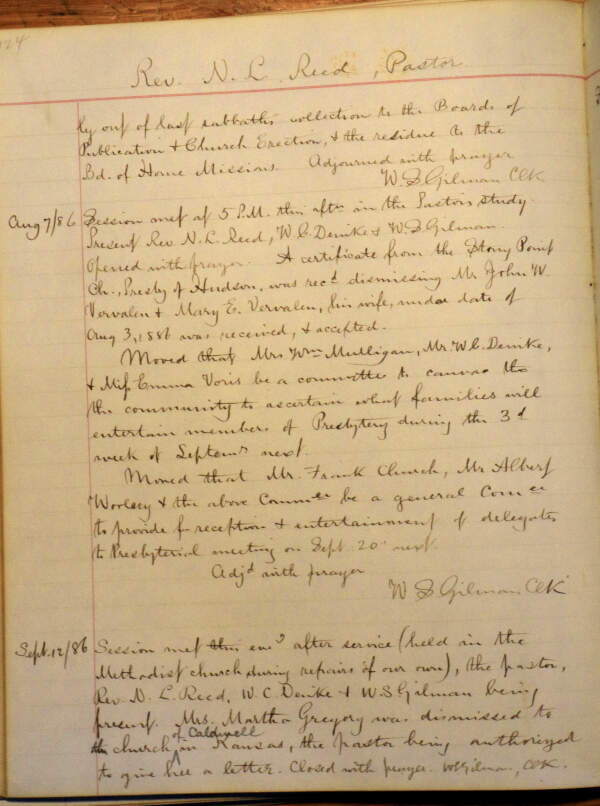 124
Rev. N. L. Reed, Pastor
ly out of last sabbath's collection to the Boards of
Publication & Church Erection, & the residue to the
Bd. of Home Missions. Adjourned with prayer
W. S. Gilman Clk
Aug 7/86 Session met at 5 P.M. this aftn in the Pastor's study.
Present Rev. N. L. Reed, W. C. Denike & W. S. Gilman.
Opened with prayer. A certificate from the Stony Point
Ch., Presby of Hudson, was recd dismissing Mr. John W.
Vervalen & Mary E. Vervalen, his wife, under date of
Aug 3, 1886 was received, & accepted.
Moved that Mrs Wm Mulligan, Mr. W. C. Denike,
& Miss Emma Voris be a committee to canvas the
the community to ascertain what families will
entertain members of Presbytery during the 3d
week of Septemr next.
Moved that Mr. Frank Church, Mr Albert
Woolsey & the above Commee be a general Comee
to provide for reception & entertainment of delegates
to Presbyterial meeting on Sept. 20 next.
Adjd with prayer
W S Gilman, Clk
Sept. 12/86 Session met this eveg after service (held in the
Methodist church during repairs of our own), the pastor,
Rev. N. L. Reed, W. C. Denike & W S Gilman being
present. Mrs. Martha Gregory was dismissed to
the church of Caldwell in Kansas, the pastor being authorized
to give her a letter. Closed with prayer. W S Gilman, Clk.